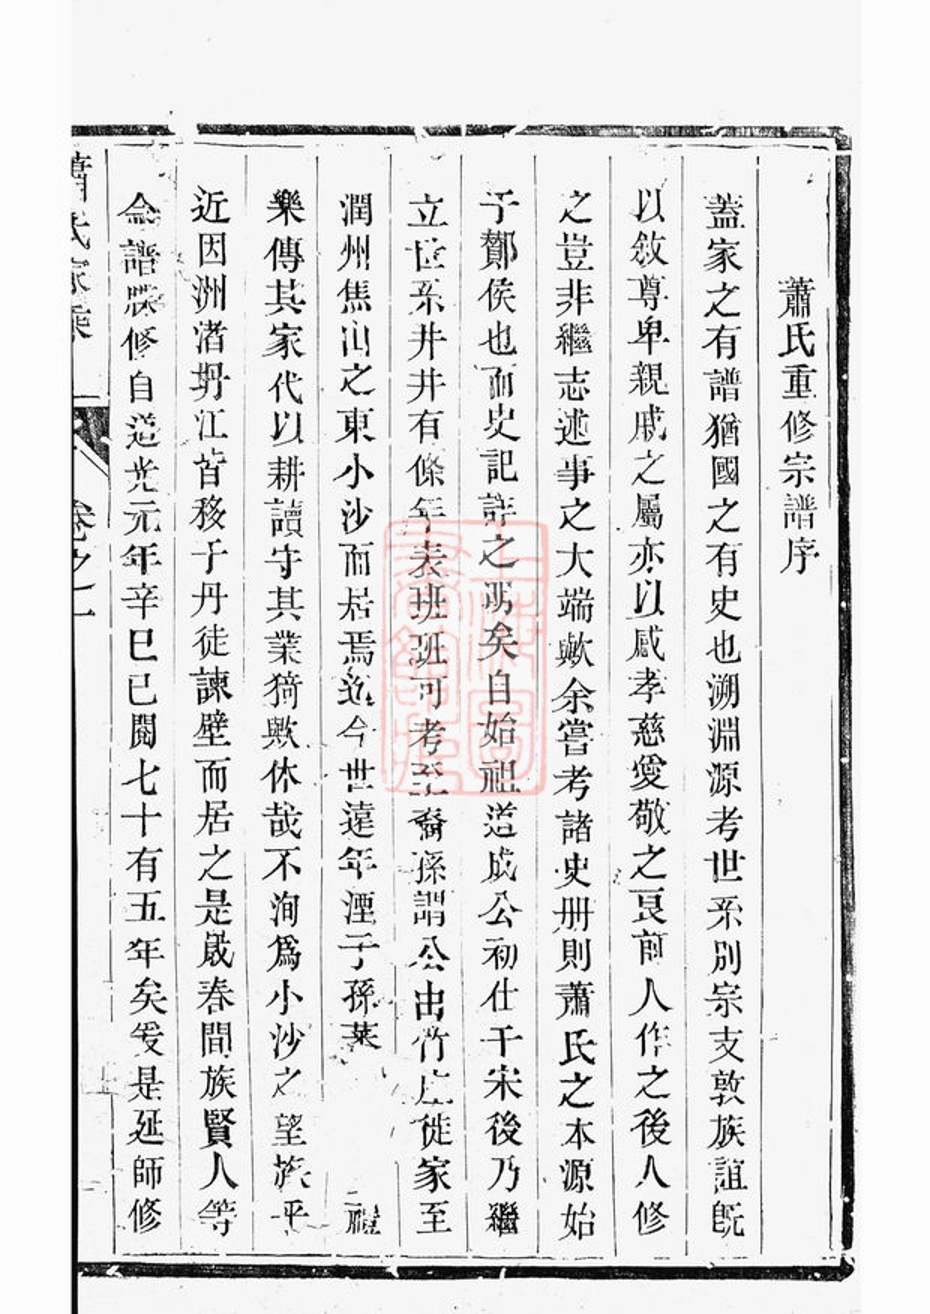 蕭氏重修宗譜序
蓋家之有譜猶國之有史也溯淵源考世系別宗支敦族誼旣
以敘尊卑親戚之屬亦以感孝慈愛敬之良前人作之後人修
之豈非繼志述事之大端歟余嘗考諸史册則蕭氏之本源始
于酇侯也而史記詳之矣自始祖道成公初仕于宋後乃繼
立世系井井有條年表班班可考至裔孫謂公由竹庄徙家至
潤州焦山之東小沙而居焉迄今世遠年湮子孫禮
樂傳其家代以耕讀守其業猗歟休哉不洵爲小沙之望族乎
近因洲渚坍江皆移于丹徒諫壁而居之是歲春間族賢人等
僉譜牒修自道光元年辛巳已閱七十有五年矣爰是延師修
蕭氏家乘
卷之一